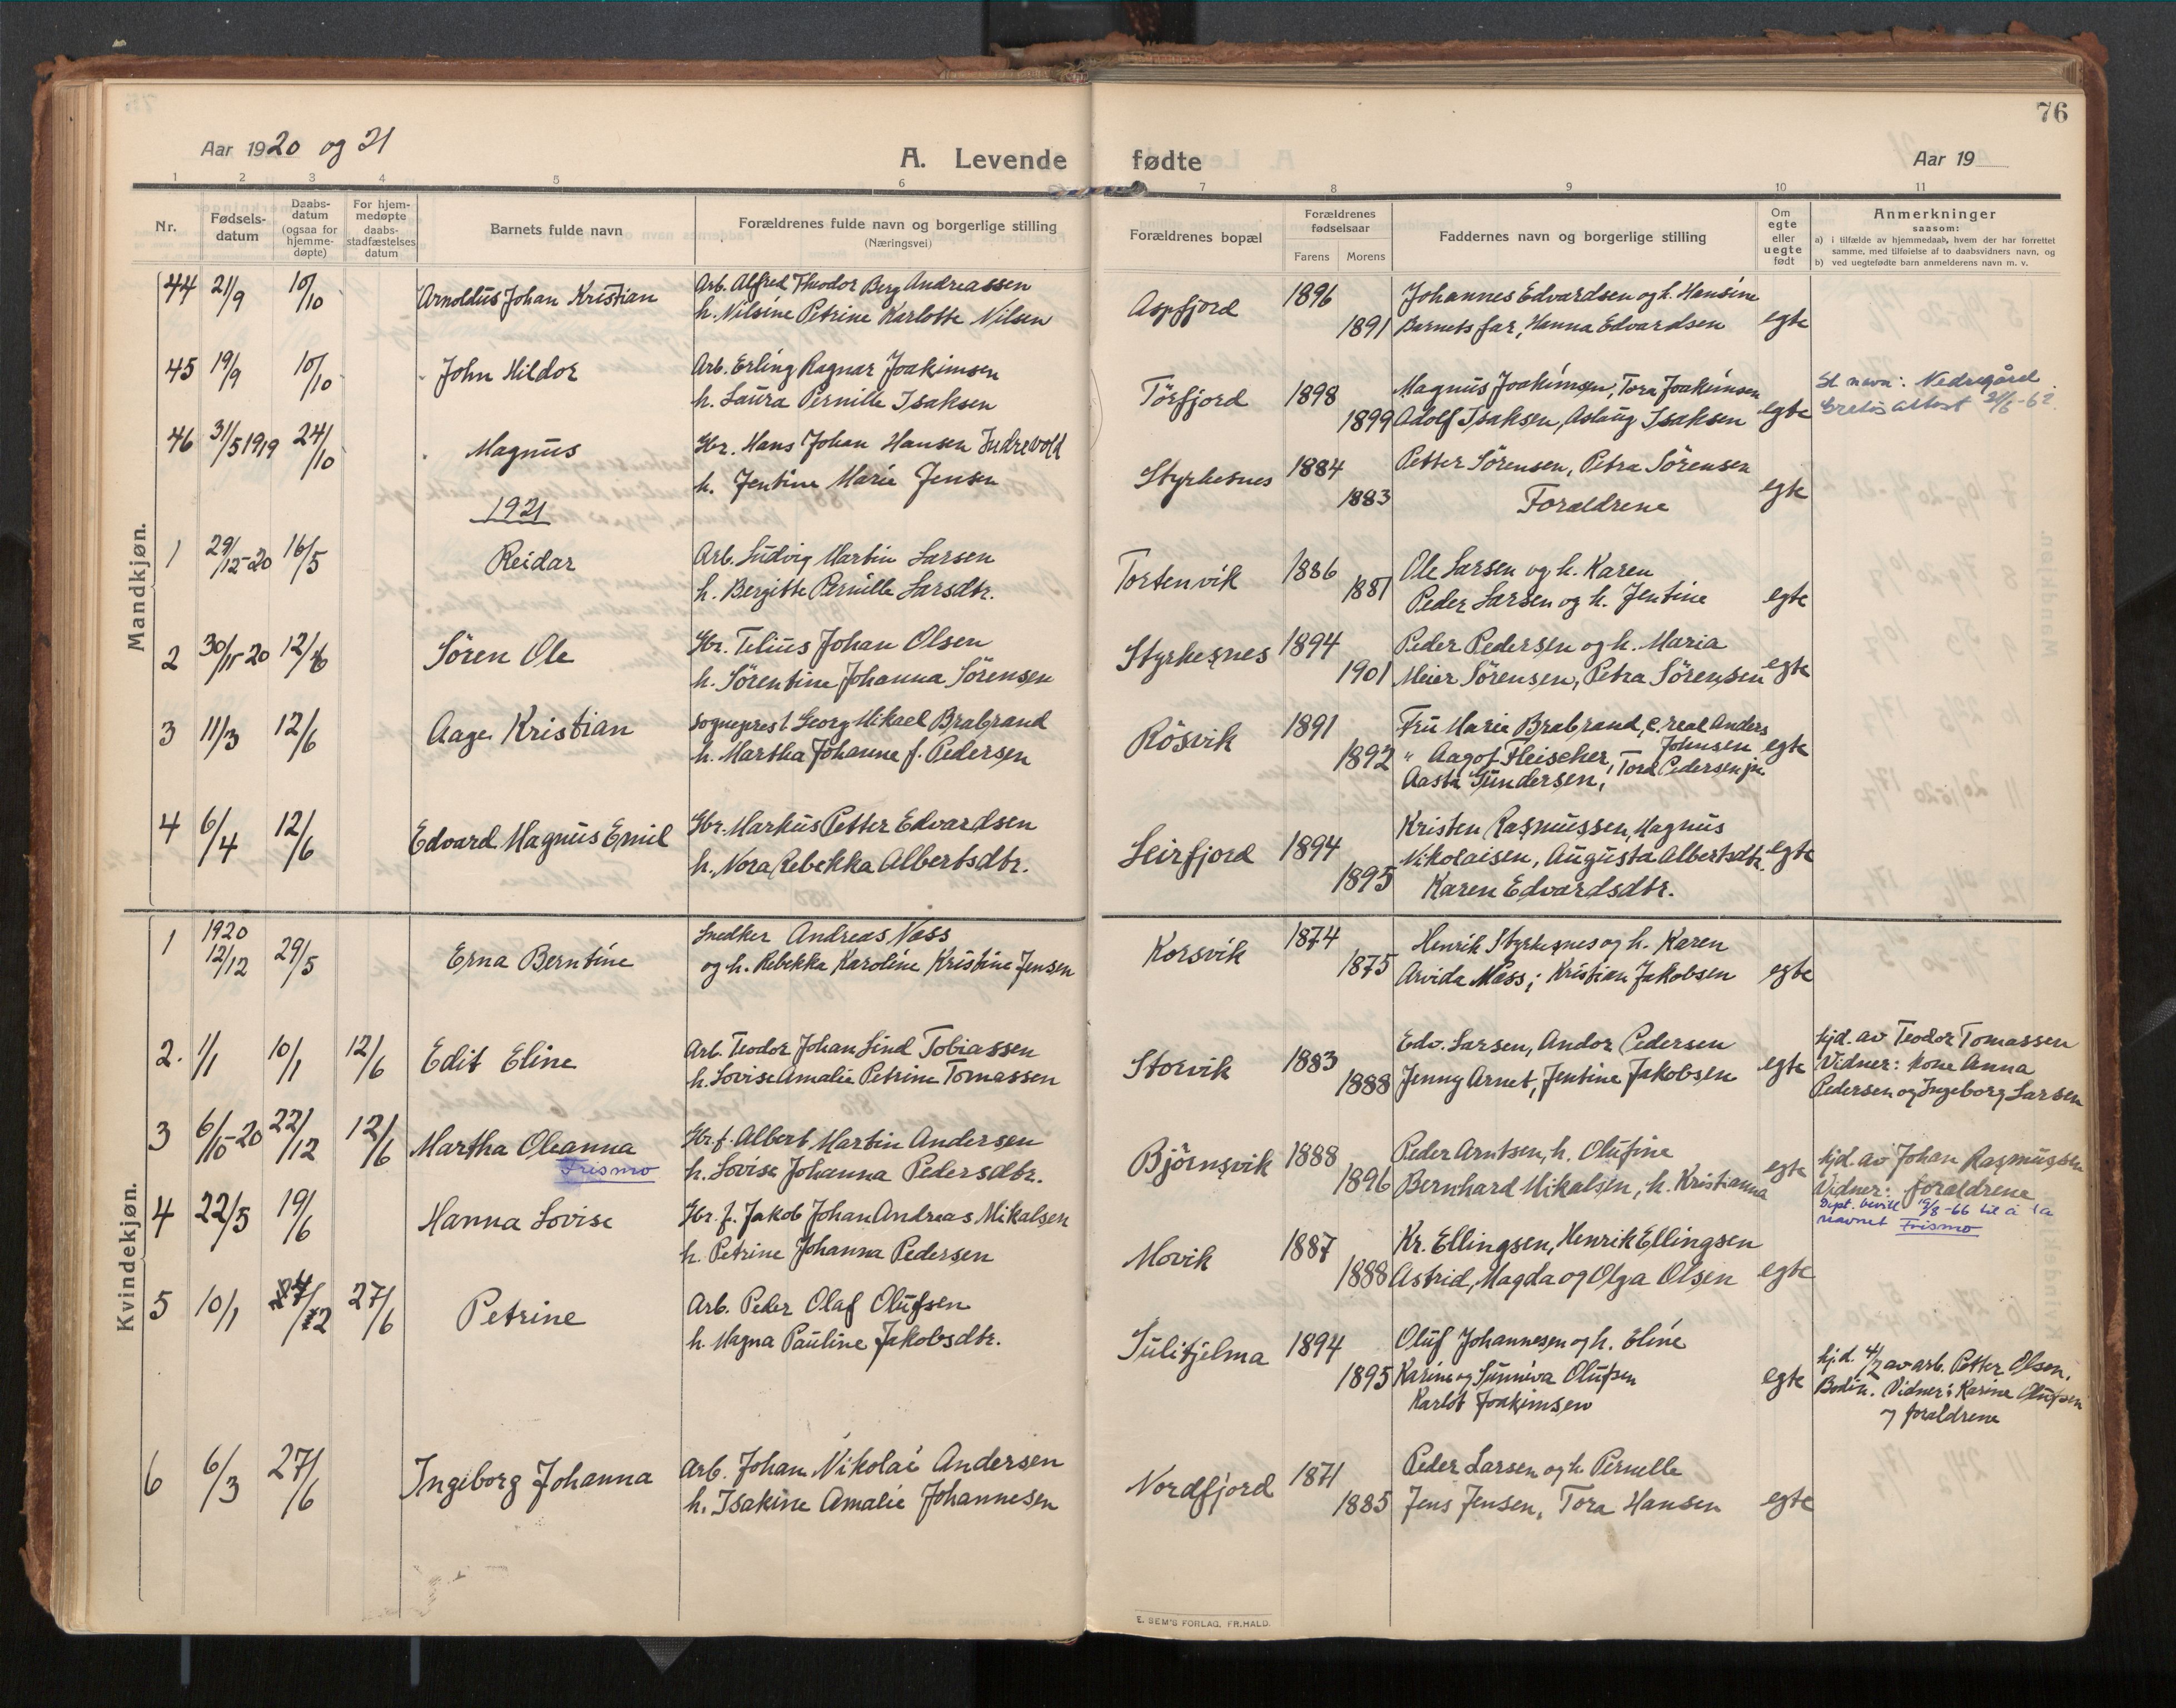 76
Aar 1920 og 21
A. Levende fødte
Aar 19
1 2 3 4 5 6 7 8 9 10 11
Nr.
Fødsels-
datum
Daabs-
datum
(ogsaa for
hjemme-
døpte)
For hjem-
medøpte
daabs-
stadfæstelses
datum
Barnets fulde navn
Forældrenes fulde navn og borgerlige stilling
(Næringsvei)
Forældrenes bopæl
Forældrenes
fødselsaar
Farens Morens
Faddernes navn og borgerlige stilling
Om
egte
eller
uegte
født
Anmerkninger
saasom:
a) i tilfælde av hjemmedaab, hvem der har forrettet
samme, med tilføielse af to daabsvidners navn, og
b) ved uegtefødte barn anmelderens navn m. v.
Mandkjøn.
44 21/9 10/10 Arnoldus Johan Kristian Arb. Alfred Theodor Berg Andreassen Aspfjord 1896 Johannes Edvardsen og h. Hansine
h. Nilsine Petrine Karlotte Nilsen 1891 Barnets far, Hanna Edvardsen egte
45 19/9 10/10 John Hildor Arb. Erling Ragnar Joakimsen Törfjord 1898 Magnus Joakimsen, Tora Joakimsen
h. Laura Pernille Isaksen 1899 Adolf Isaksen, Aslaug Isaksen egte
Nedregård
attest 21/6-62
46 31/5 1919 24/10 Magnus Gbr. Hans Johan Hansen Indrevold Styrkesnes 1884 Petter Sörensen, Petra Sörensen
h. Jentine Marie Jensen 1883 Forældrene egte
1921
1 29/12-20 16/5 Reidar Arb. Ludvig Martin Larsen Tortenvik 1886 Ole Larsen og h. Karen
h. Bergitte Pernille Larsdtr. 1881 Peder Larsen og h. Jentine egte
2 30/11-20 12/6 Sören Ole Gbr. Telius Johan Olsen Styrkesnes 1894 Peder Pedersen og h. Maria
h. Sörentine Johanna Sörensen 1901 Meier Sörensen, Petra Sörensen egte
3 11/3 12/6 Aage Kristian Sogneprest Georg Mikael Brabrand Rösvik 1891 Fru Marie Brabrand, c. real Anders
h. Martha Johanne f. Pedersen 1892 " Aagot Fleischer, Johnsen egte
Aasta Gundersen, Tora Pedersen jr.
4 6/4 12/6 Edvard Magnus Emil Gbr. Markus Petter Edvardsen Leirfjord 1894 Kristen Rasmussen, Magnus
h. Nora Rebekka Albertsdtr. 1895 Nikolaisen, Augusta Albertsdtr. egte
Karen Edvardsdtr.
Kvindekjøn.
1 1920 12/12 29/5 Erna Berntine Snedker Andreas Næss Korsvik 1874 Henrik Styrkesnes og h. Karen
og h. Rebekka Karoline Kristine Jensen 1875 Arvida Næss; Kristian Jakobsen egte
2. 1/1 10/1 12/6 Edit Eline Arb. Teodor Johan Lind Tobiassen Storvik 1883 Edv. Larsen, Andor Pedersen
h. Lovise Amalie Petrine Tomassen 1888 Jenny Arnet, Jentine Jakobsen egte
hjd. av Teodor Tomassen
Vidner: kone Anna
Pedersen og Ingeborg Larsen
3 6/10-20 22/12 12/6 Martha Oleanna Gbr. f. Albert Martin Andersen Björnsvik 1888 Peder Arntsen, h. Olufine
Frismo
h. Lovise Johanna Pedersdtr. 1896 Bernhard Mikalsen, h. Kristianna egte
hjd. av Johan Rasmussen
Vidner: forældrene
Dept. bevill 19/8-66 til å ta
navnet Frismo
4 22/5 19/6 Hanna Lovise Gbr. f. Jakob Johan Andreas Mikalsen Movik 1887 Kr. Ellingsen, Henrik Ellingsen
h. Petrine Johanna Pedersen 1888 Astrid, Magda og Olga Olsen egte
5 10/1 4/2 27/6 Petrine Arb. Peder Olaf Olufsen Sulitjelma 1894 Oluf Johannesen og h. Eline
h. Magna Pauline Jakobsdtr. 1895 Karine og Sunniva Olufsen egte
Karlot Joakimsen
hjd. 4/2 av arb. Petter Olsen,
Bodin. Vidner: Karine Olufsen
og forældrene
6 6/3 27/6 Ingeborg Johanna Arb. Johan Nikolai Andersen Nordfjord 1871 Peder Larsen og h. Pernelle
h. Isakine Amalie Johannesen 1885 Jens Jensen, Tora Hansen egte
E. SEM'S FORLAG, FR.HALD.